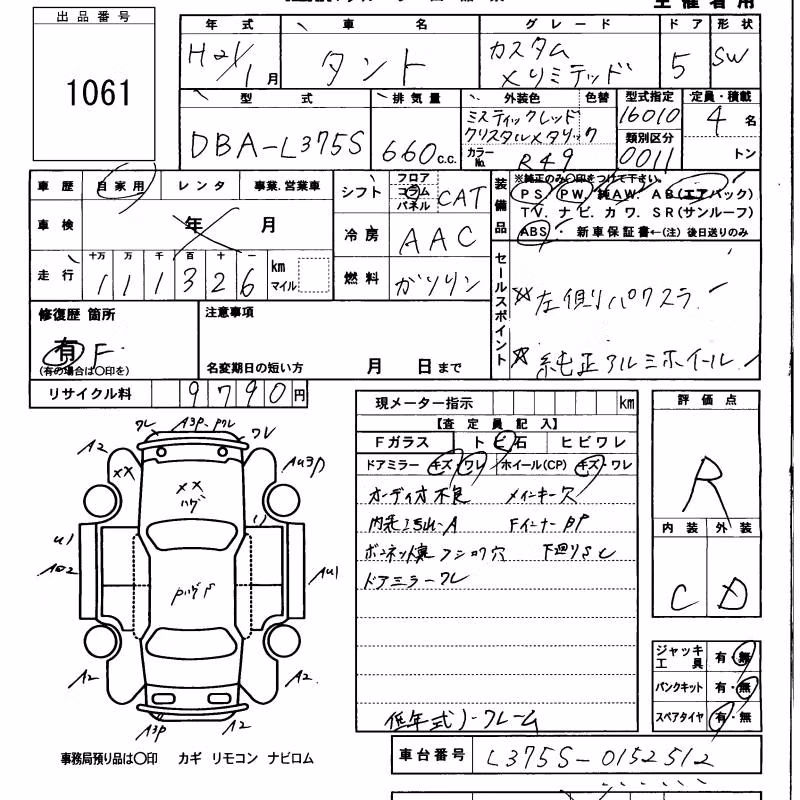 出品番号
1061
年式 車名 グレード ドア 形状
H21/1月 タント カスタム
メリミテッド 5 SW
型式 排気量 外装色 色替 型式指定 定員・積載
DBA-L375S 660c.c. ミスティックレッド
クリスタルメタリック 16010 4名
カラーNo. R49 類別区分 0011 トン
車歴 自家用 レンタ 事業.営業車 シフト フロア コラム パネル CAT
装備品 ※純正のみ〇印をつけて下さい。
PS. PW. 純AW. AB(エアバック)
TV. ナビ. カワ. SR(サンルーフ)
ABS・ 新車保証書←(注)後日送りのみ
車検 年 月 冷房 AAC
走行 十万 万 千 百 十 一
111326 km マイル 燃料 ガソリン
セールスポイント
☆左側パワスラ
☆純正アルミホイール
修復歴 箇所 注意事項
有 F
(有の場合は〇印を) 名変期日の短い方 月 日まで
リサイクル料 9790円
現メーター指示 km
評価点
R
【査定員記入】
Fガラス トビ石 ヒビワレ
ドアミラー キズ・ワレ ホイール(CP) キズ・ワレ
オーディオ不良 メインキー穴
内装 A Fインナー BP
ボンネット裏 穴 下廻りSC
ドアミラーワレ
低年式ノークレーム
内装 外装
C D
ワレ A3P.Pワレ ワレ
A2 XX A43P
XX
ハゲ
U1
A02 Pハゲ AU1
A2 A2
A3P A2
ジャッキ工具 有・無
パンクキット 有・無
スペアタイヤ 有・無
事務局預り品は〇印 カギ リモコン ナビロム
車台番号 L375S-0152512